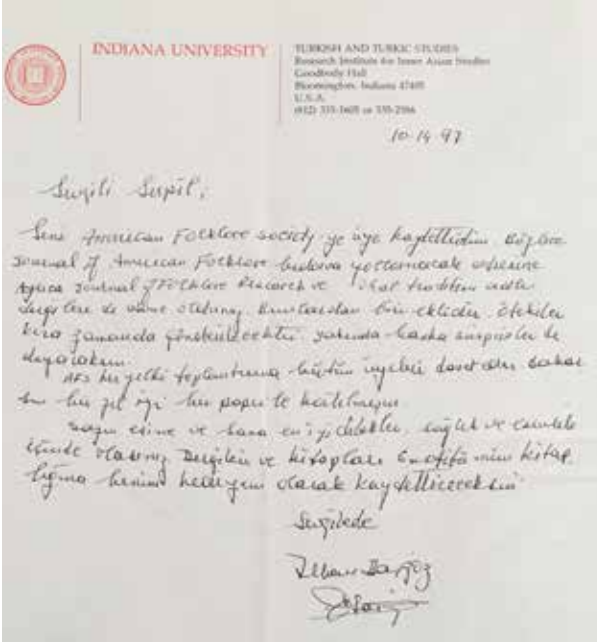 INDIANA UNIVERSITY
TURKISH AND TURKIC STUDIES
Research Institute for Inner Asian Studies
Goodbody Hall
Bloomington, Indiana 47405
U.S.A.
10-14-97
Sevgili Serpil,
Seni American Folklore Society ye üye kaydettirdim. Böylece
Journal of American Folklore bedava adresine
Ayrıca Journal of Folklore Research ve Oral Tradition adlı
dergilere de abone oldunuz. Bunlardan biri ektedir ötekiler
kısa zamanda gönderilecektir. yakında başka sürprizler de
duyacaksın.
AFS her yılki toplantısına bütün üyeleri davet eder
bir yıl iyi bir paper le katılmışsın
Sayın eşine ve sana en iyi dilekler, sağlık ve esenlik
içinde olasınız Dergileri ve kitapları kitap
lığına benim hediyem olarak kaydettireceksin
Sevgilerle
İlhan Başgöz